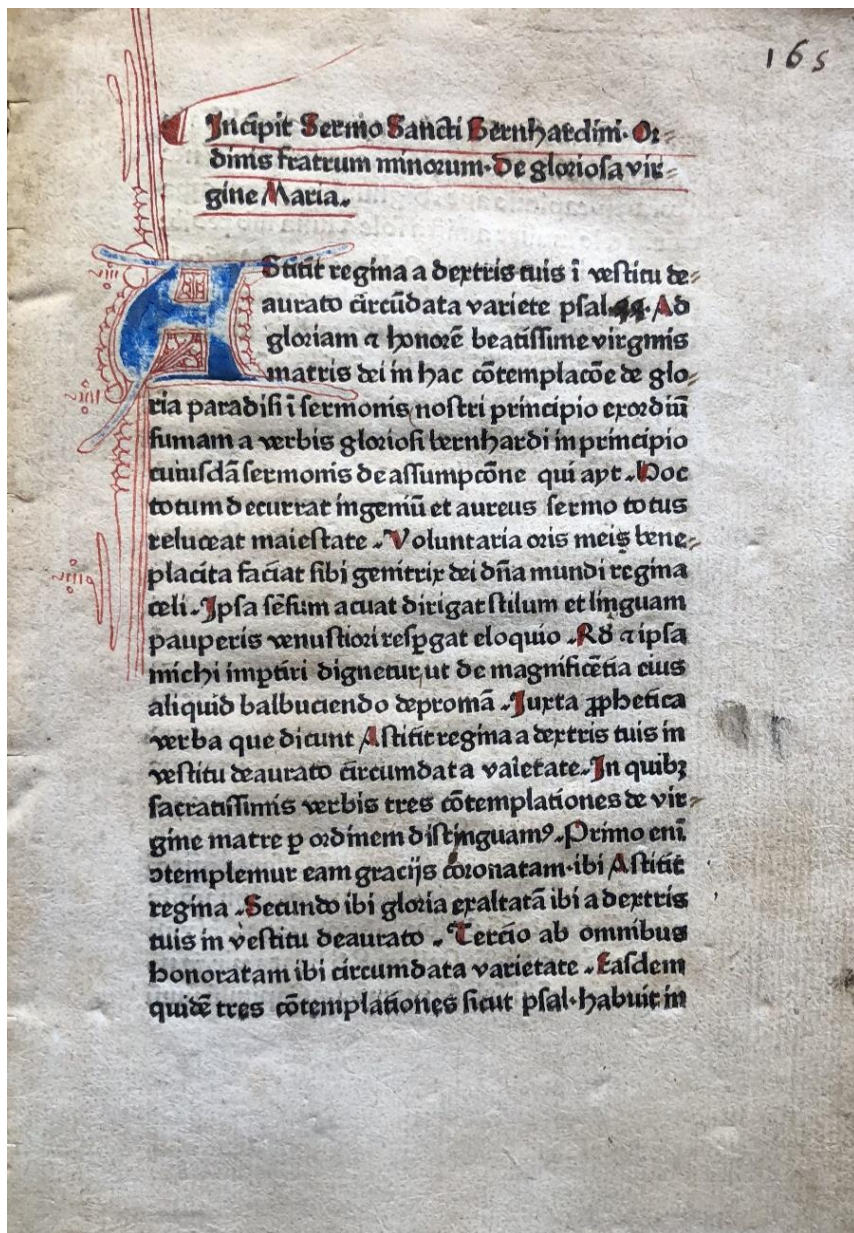 165
Incipit Sermo Sancti Bernhardini. Or⸗
dinis fratrum minorum. De gloriosa vir⸗
gine Maria.
AStitit regina a dextris tuis ī vestitu de⸗
aurato circūdata variete psal. Ad
gloriam ⁊ honorē beatissime virginis
matris dei in hac cōtemplacōe de glo⸗
ria paradisi ī sermonis nostri principio exordiū
sumam a verbis gloriosi bernhardi in principio
cuiusdā sermonis de assumpcōne qui ayt. Hoc
totum decurrat ingeniū et aureus sermo totus
reluceat maiestate. Voluntaria oris meis bene⸗
placita faciat sibi genitrix dei dn̄a mundi regina
celi. Ipsa sēsum acuat dirigat stilum et linguam
pauperis venustiori resꝑgat eloquio. ⁊ ipsa
michi imꝑtiri dignetur, ut de magnificētia eius
aliquid balbuciendo depromā. Juxta ꝓphetica
verba que dicunt Astitit regina a dextris tuis in
vestitu deaurato circumdata vaietate. In quibꝫ
sacratissimis verbis tres cōtemplationes de vir⸗
gine matre ꝑ ordinem distinguamꝰ. Primo enī
ↄtemplemur eam gracijs coronatam. ibi Astitit
regina. Secundo ibi gloria exaltatā ibi a dextris
tuis in vestitu deaurato. Tercio ab omnibus
honoratam ibi circumdata varietate. Easdem
quidē tres cōtemplationes sicut psal. habuit in